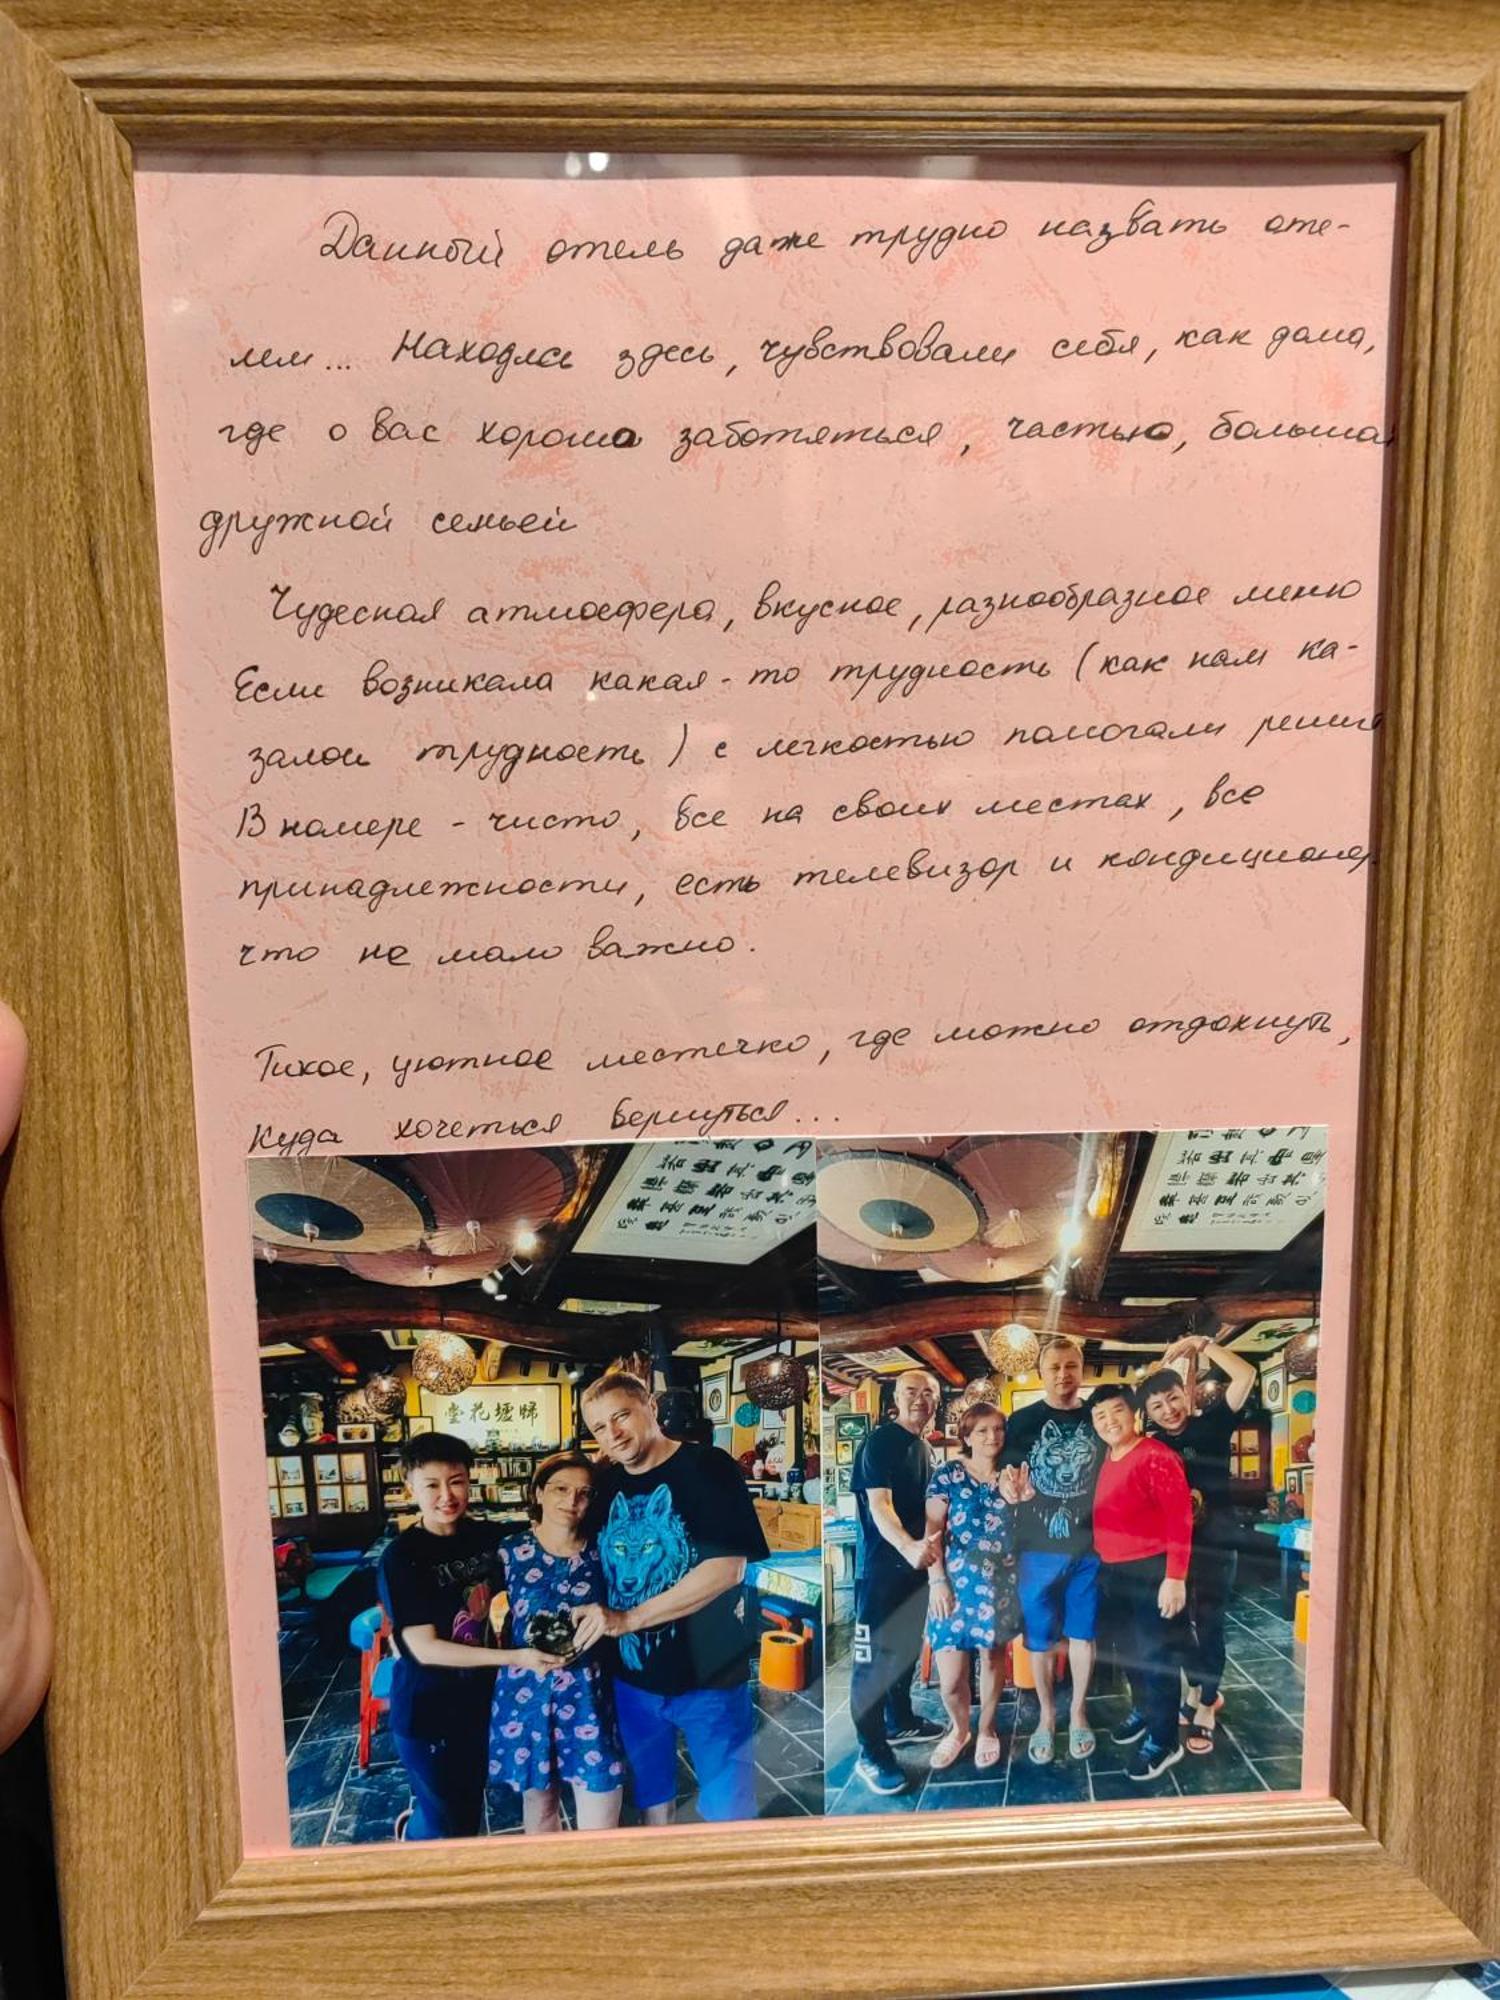 Данный отель даже трудно назвать оте-
лем... Находясь здесь, чувствовали себя, как дома,
где о вас хорошо заботяться, частью, большой
дружной семьей
Чудесная атмосфера, вкусное, разнообразное меню
Если возникала какая-то трудность (как нам ка-
залои трудность) с легкостью помогали решить
В номере - чисто, все на своих местах, все
принадлежности, есть телевизор и кондиционер
что не мало важно.
Тихое, уютное местечко, где можно отдохнуть,
куда хочеться вернуться...
堂花墟歸